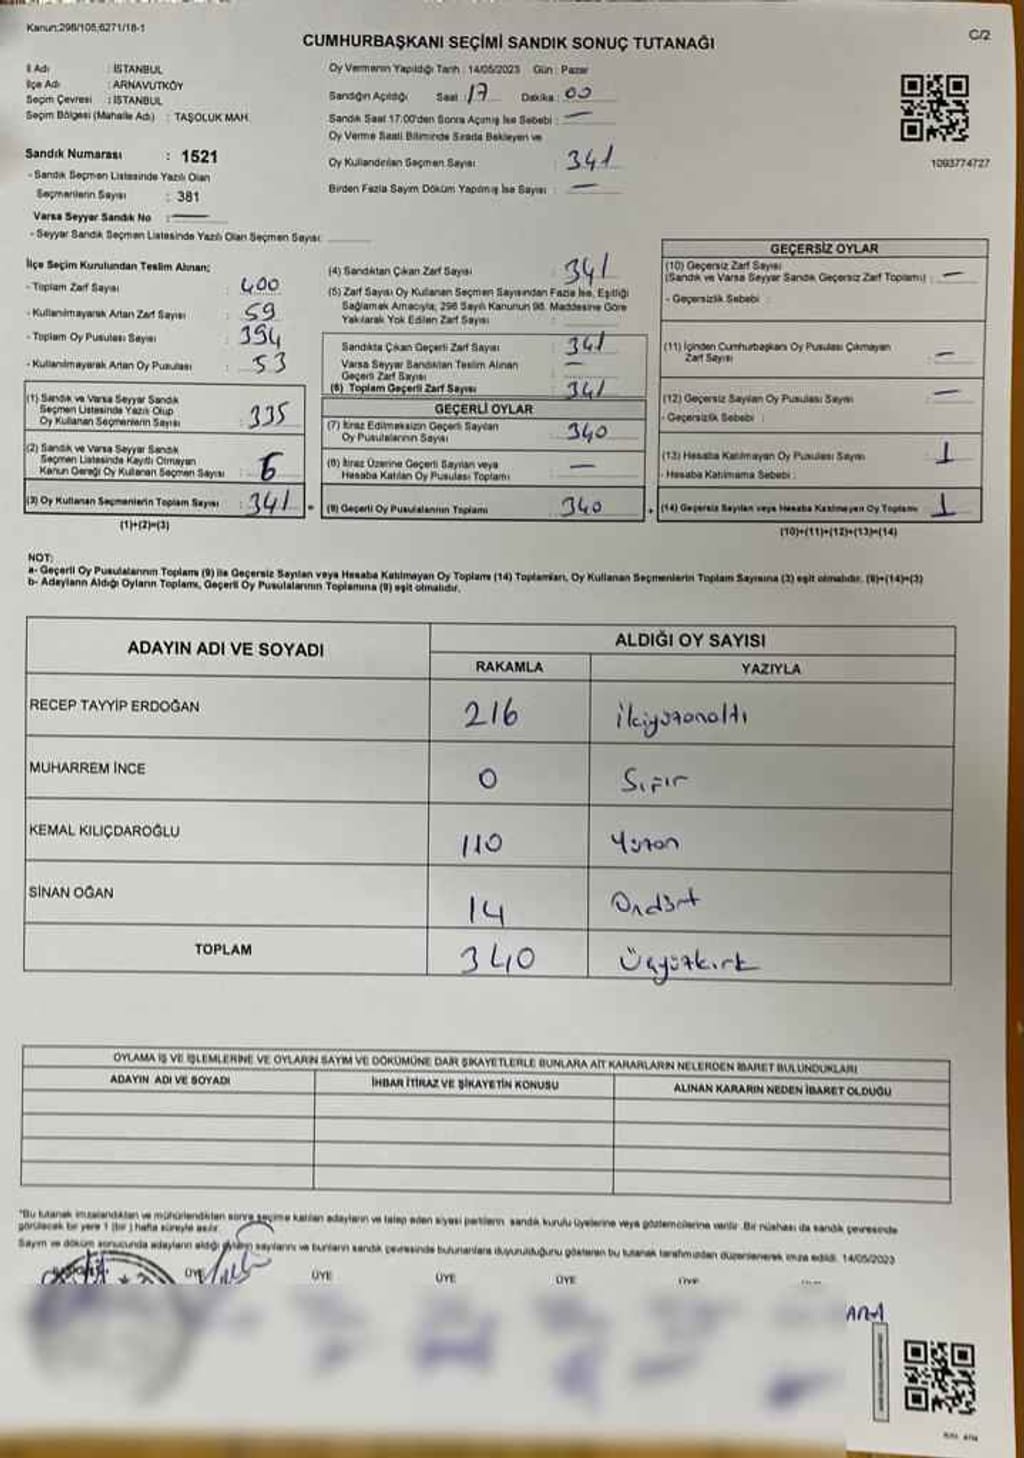 Kanun:298/105,6271/18-1
C/2
CUMHURBAŞKANI SEÇİMİ SANDIK SONUÇ TUTANAĞI
İl Adı : İSTANBUL
İlçe Adı : ARNAVUTKÖY
Seçim Çevresi : İSTANBUL
Seçim Bölgesi (Mahalle Adı) : TAŞOLUK MAH.
Sandık Numarası : 1521
- Sandık Seçmen Listesinde Yazılı Olan
Seçmenlerin Sayısı : 381
Varsa Seyyar Sandık No : —
- Seyyar Sandık Seçmen Listesinde Yazılı Olan Seçmen Sayısı:
Oy Vermenin Yapıldığı Tarih : 14/05/2023 Gün : Pazar
Sandığın Açıldığı Saat : 17 Dakika : 00
Sandık Saat 17:00'den Sonra Açılmış İse Sebebi : —
Oy Verme Saati Bitiminde Sırada Bekleyen ve
Oy Kullandırılan Seçmen Sayısı : 341
Birden Fazla Sayım Döküm Yapılmış İse Sayısı : —
1093774727
İlçe Seçim Kurulundan Teslim Alınan;
- Toplam Zarf Sayısı : 400
- Kullanılmayarak Artan Zarf Sayısı : 59
- Toplam Oy Pusulası Sayısı : 394
- Kullanılmayarak Artan Oy Pusulası : 53
(1) Sandık ve Varsa Seyyar Sandık
Seçmen Listesinde Yazılı Olup
Oy Kullanan Seçmenlerin Sayısı : 335
(2) Sandık ve Varsa Seyyar Sandık
Seçmen Listesinde Kayıtlı Olmayan
Kanun Gereği Oy Kullanan Seçmen Sayısı : 6
(3) Oy Kullanan Seçmenlerin Toplam Sayısı : 341
(1)+(2)=(3)
(4) Sandıktan Çıkan Zarf Sayısı : 341
(5) Zarf Sayısı Oy Kullanan Seçmen Sayısından Fazla İse, Eşitliği
Sağlamak Amacıyla, 298 Sayılı Kanunun 98. Maddesine Göre
Yakılarak Yok Edilen Zarf Sayısı :
Sandıkta Çıkan Geçerli Zarf Sayısı : 341
Varsa Seyyar Sandıktan Teslim Alınan
Geçerli Zarf Sayısı : —
(6) Toplam Geçerli Zarf Sayısı : 341
GEÇERLİ OYLAR
(7) İtiraz Edilmeksizin Geçerli Sayılan
Oy Pusulalarının Sayısı : 340
(8) İtiraz Üzerine Geçerli Sayılan veya
Hesaba Katılan Oy Pusulası Toplamı : —
(9) Geçerli Oy Pusulalarının Toplamı : 340
GEÇERSİZ OYLAR
(10) Geçersiz Zarf Sayısı
(Sandık ve Varsa Seyyar Sandık Geçersiz Zarf Toplamı) : —
- Geçersizlik Sebebi :
(11) İçinden Cumhurbaşkanı Oy Pusulası Çıkmayan
Zarf Sayısı : —
(12) Geçersiz Sayılan Oy Pusulası Sayısı : —
- Geçersizlik Sebebi :
(13) Hesaba Katılmayan Oy Pusulası Sayısı : 1
- Hesaba Katılmama Sebebi :
(14) Geçersiz Sayılan veya Hesaba Katılmayan Oy Toplamı : 1
(10)+(11)+(12)+(13)=(14)
NOT:
a- Geçerli Oy Pusulalarının Toplamı (9) ile Geçersiz Sayılan veya Hesaba Katılmayan Oy Toplamı (14) Toplamları, Oy Kullanan Seçmenlerin Toplam Sayısına (3) eşit olmalıdır. (9)+(14)=(3)
b- Adayların Aldığı Oyların Toplamı, Geçerli Oy Pusulalarının Toplamına (9) eşit olmalıdır.
ADAYIN ADI VE SOYADI
ALDIĞI OY SAYISI
RAKAMLA YAZIYLA
RECEP TAYYİP ERDOĞAN 216 ikiyüzonaltı
MUHARREM İNCE 0 Sıfır
KEMAL KILIÇDAROĞLU 110 Yüzon
SİNAN OĞAN 14 Ondört
TOPLAM 340 Üçyüzkırk
OYLAMA İŞ VE İŞLEMLERİNE VE OYLARIN SAYIM VE DÖKÜMÜNE DAİR ŞİKAYETLERLE BUNLARA AİT KARARLARIN NELERDEN İBARET BULUNDUKLARI
ADAYIN ADI VE SOYADI İHBAR İTİRAZ VE ŞİKAYETİN KONUSU ALINAN KARARIN NEDEN İBARET OLDUĞU
"Bu tutanak imzalandıktan ve mühürlendikten sonra seçime katılan adayların ve talep eden siyasi partilerin sandık kurulu üyelerine veya gözlemcilerine verilir. Bir nüshası da sandık çevresinde
görülecek bir yere 1 (bir) hafta süreyle asılır.
Sayım ve döküm sonucunda adayların aldığı oyların sayılarını ve bunların sandık çevresinde bulunanlara duyurulduğunu gösteren bu tutanak tarafımızdan düzenlenerek imza edildi. 14/05/2023
ÜYE ÜYE ÜYE ÜYE ÜYE